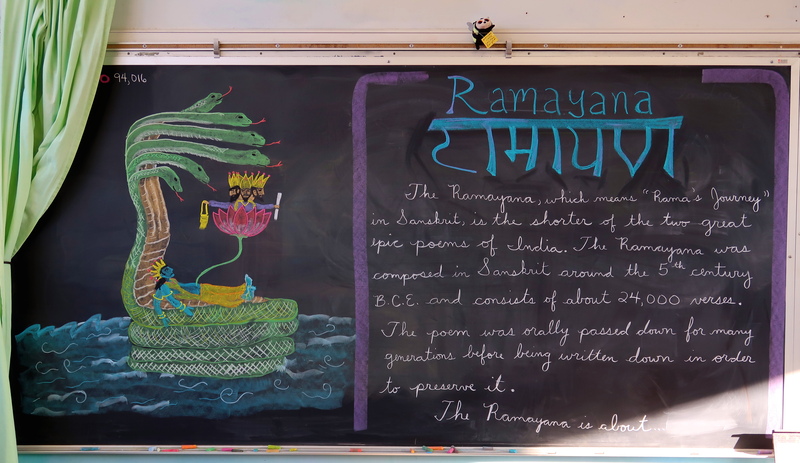 94,016
Ramayana
रामायण
The Ramayana, which means "Rama's Journey"
in Sanskrit, is the shorter of the two great
epic poems of India. The Ramayana was
composed in Sanskrit around the 5th century
B.C.E. and consists of about 24,000 verses.
The poem was orally passed down for many
generations before being written down in order
to preserve it.
The Ramayana is about...